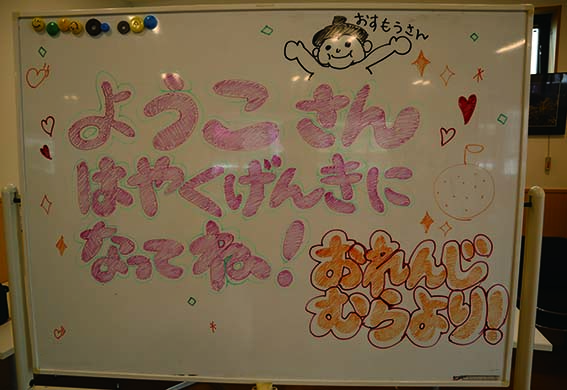 おすもうさん
ようこさん
はやくげんきに
なってね!
おれんじ
むらより!